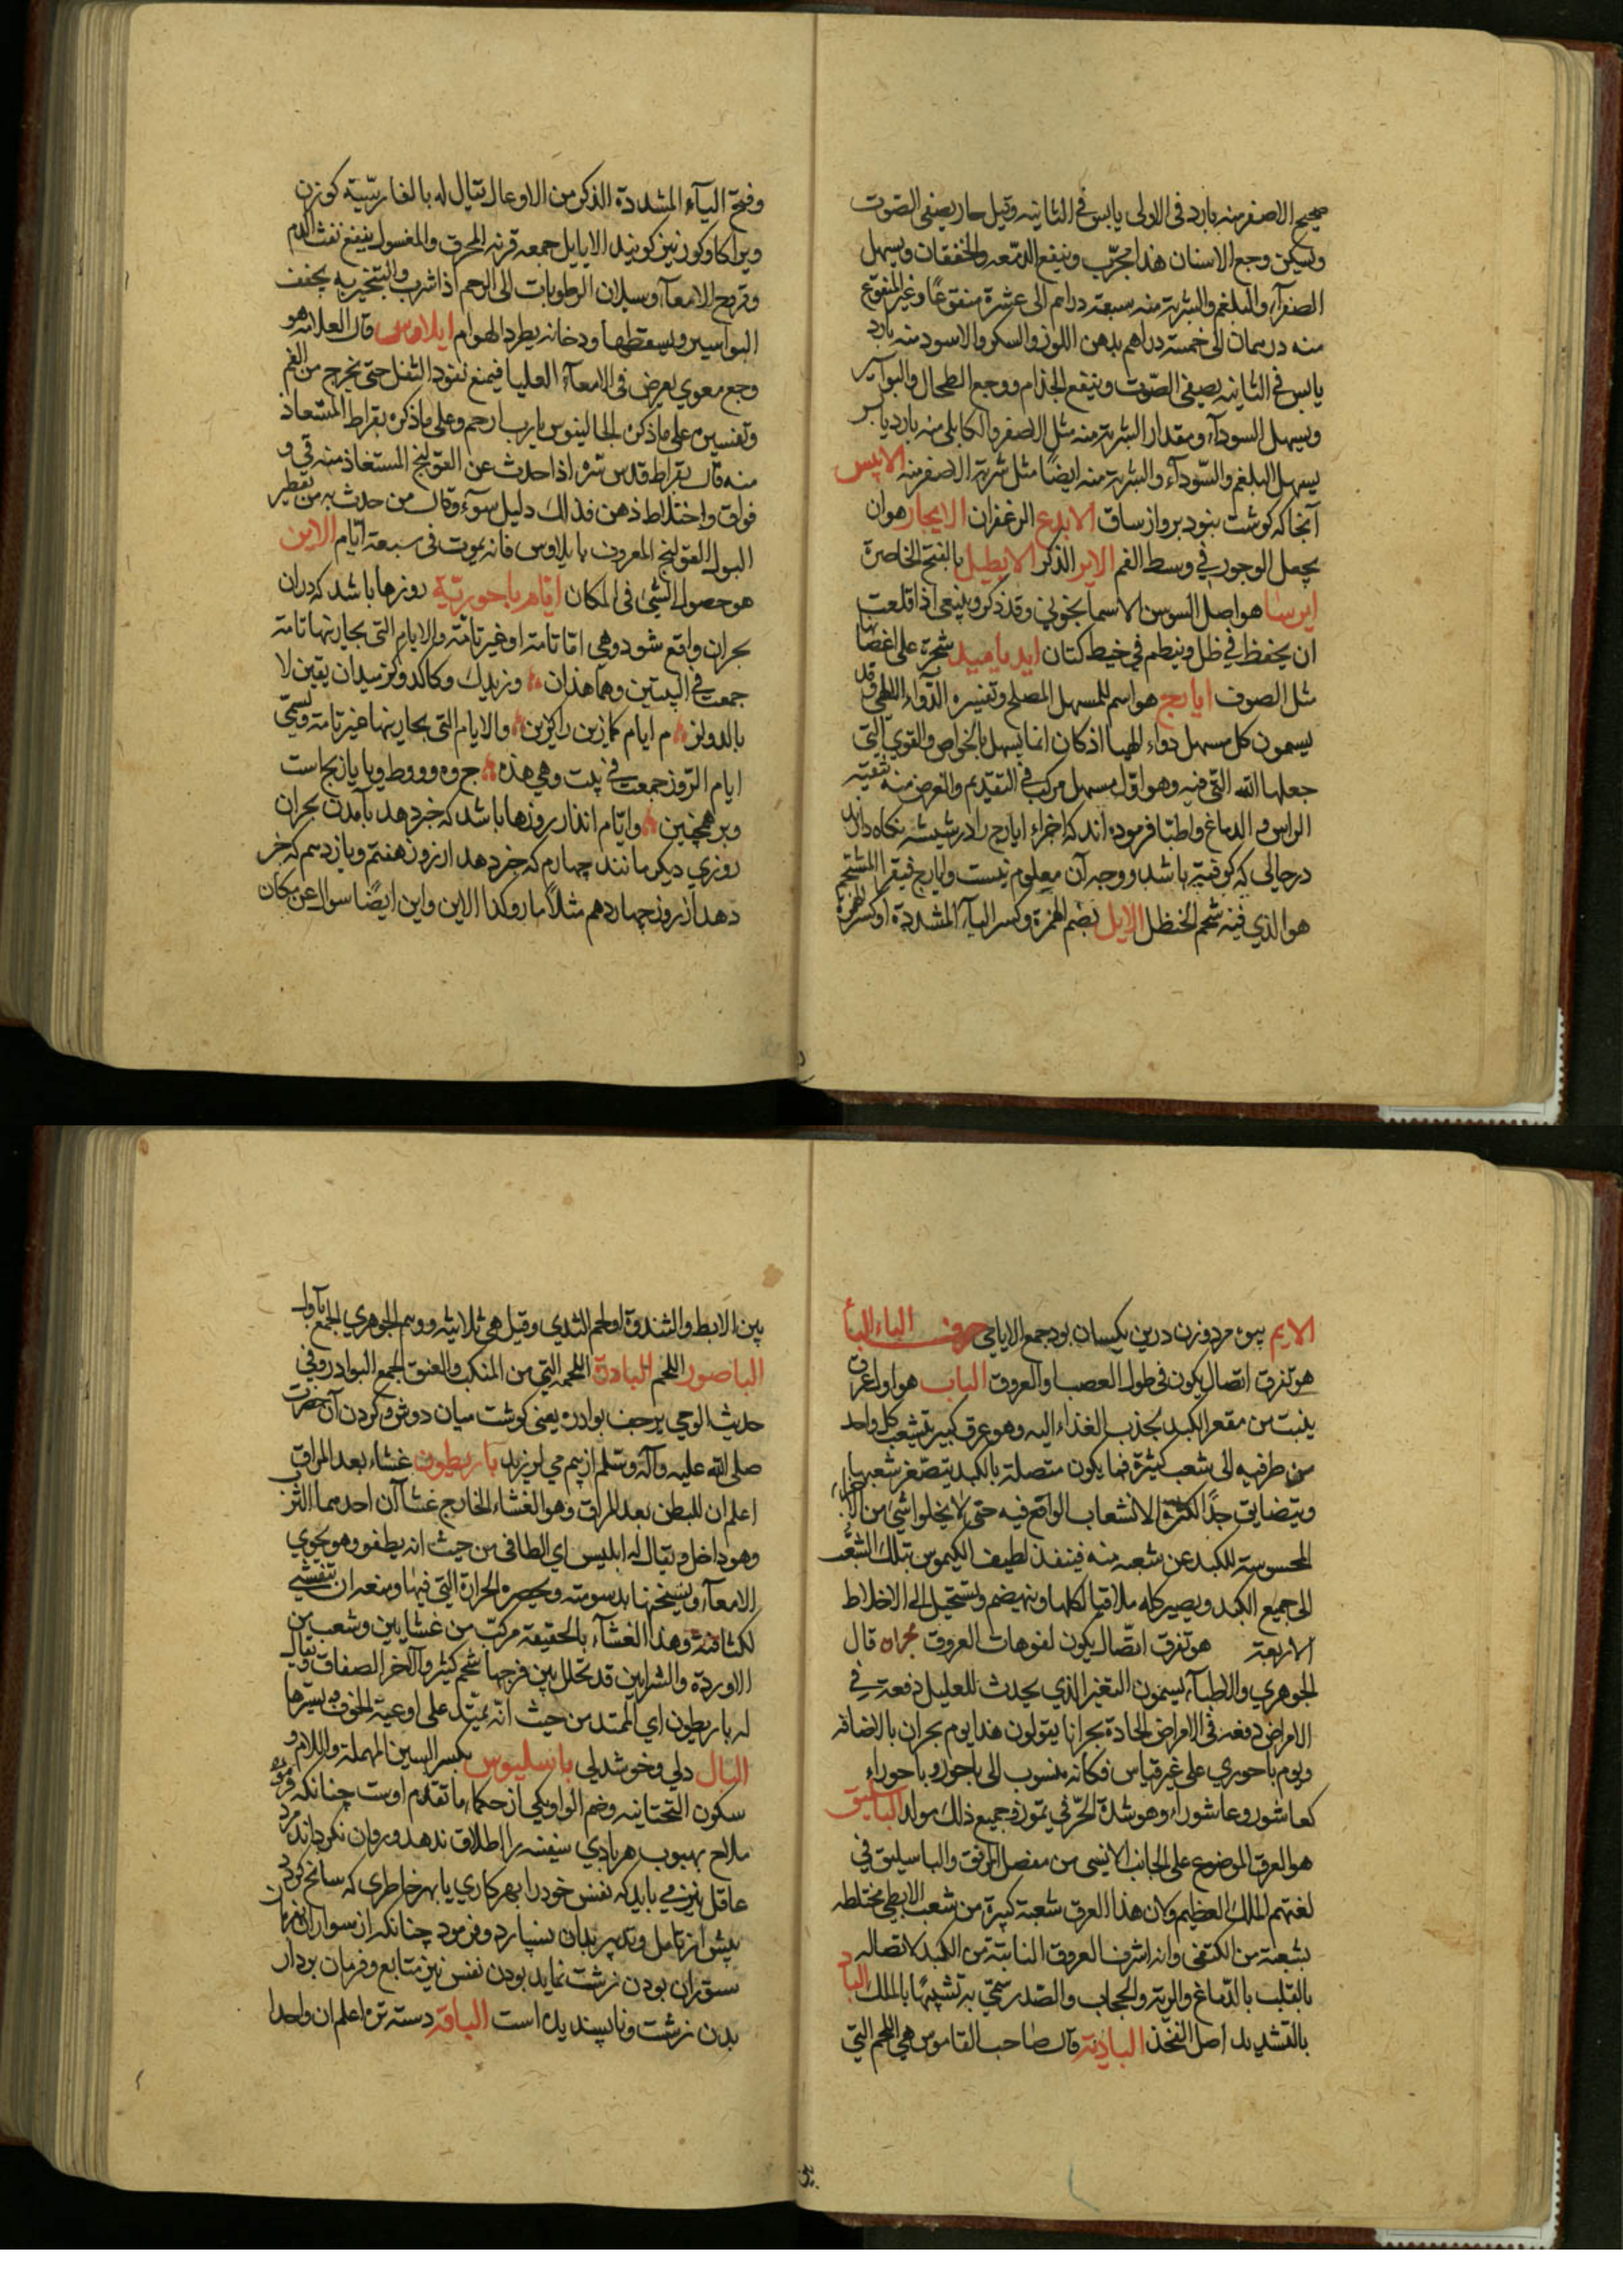 صحیح الاصفر منه بارد فی الاولی یابس فی الثانیه وقیل حار یصفی الصوت
ویسکن وجع الاسنان هذا مجرّب وینفع الدمعه والخفقان ویسهل
الصفرآء والبلغم والشربة منه سبعة دراهم الی عشرة منقوعًا وغیر المنقوع
منه درهمان الی خمسة دراهم بدهن اللوز والسکر والاسود منه بارد
یابس فی الثانیه یصفی الصّوت وینفع الجذام ووجع الطحال والبواسیر
ویسهل السودآء ومقدار الشربة منه مثل الاصفر والکابلی منه بارد یابس
یسهل البلغم والسّودآء والشربة منه ایضًا مثل شربة الاصفر منه الایبس
آنجا که کوشت بنود بر واز ساق الایدع الزعفران الایجار هو ان
یجعل الوجور فی وسط الفم الایر الذکر الایطل بالفتح الخاصرة
ایرسا هو اصل السوسن الاسمانجونی وقد ذکر وینبغی اذا قلعت
ان یحفظ فی ظل وینظم فی خیط کتان شجرة علی اغصانها
مثل الصوف ایارج هو اسم للمسهل المصلح وتفسیره الدّوآء الالهی وقد
یسمون کل مسهل دواء الهیا اذ کان انما یسهل بالخواص والقوی التی
جعلها الله التی فیه وهو اوّل مسهل مرکب فی التقدیم والغرض منه تنقیة
الراس و الدماغ واطبّا فرموده اند که اجزاء ایارج را در شیشه نکاه دارند
در حالی که کوفته باشد ووجه آن معلوم نیست وایارج فیقرا المشتحم
هو الذی فیه شحم الحنظل الایل بضم الهمزة وکسر الیآء المشددة او کسر الهمزة
وفتح الیآء المشددة الذکر من الاوعال یقال له بالفارسّیة کوزن
ویرا کاوکوزن نیز کویند الایایل جمعه قرنه المحرق والمغسول ینفع نفث الدم
وقروح الامعآء وسیلان الرطوبات الی الرحم اذا شرب والتبخیر به یجفف
البواسیر ویسقطها ودخانه یطرد الهوام ایلاوس قال العلامه هو
وجع معوی یعرض فی الامعآء العلیا فیمنع نفوذ الثفل حتی یخرج من الفم
وتفسیره علی ما ذکره الجالینوس یا رب ارحم وعلی ما ذکره بقراط المستعاذ
منه قال بقراط قدس سّره اذا حدث عن القولنج المستعاذ منه قی و
فواق واختلاط ذهن فذلک دلیل سوء وقال من حدث به من تقطیر
البول القولنج المعروف بایلاوس فانه یموت فی سبعة ایام الاین
هو حصول الشئ فی المکان ایام باحوریّة روزها باشد که دران
بحران واقع شود وهی امّا تامة او غیر تامّة والایام التی بحارینها تامة
جمعت فی البیتین وهما هذان و زیدیك وکالد یقین لا
م ایام والایام التی بحارینها غیر تامة وتسمّی
ایام جمعت فی بیت وهی هذه
وبر همچنین وایّام انذار روزها باشد که خبر دهد بآمدن بحران
روزی دیکر مانند چهارم که خبر دهد از روز هفتم ویازدهم که خبر
دهد از روز چهاردهم مثلًا وکذا الاین واین ایضًا سوال عن مکان
الایم بیوه مرد وزن درین یکسان بود جمع الایامی حرف الباء البأ
هو تفرق اتصال یکون فی طول العصب والعروق الباب هو اول عرق
ینبت من مقعر الکبد یجذب الغذاء الیه وهو عرق کبیر یتشعب کل واحد
من طرفیه الی شعب کثیرة فما یکون متصلة بالکبد یتصغر شعبها
ویتضایق جدًا لکثرة الانشعاب الواقع فیه حتی لا یخلوا شئ من الاجزاء
المحسوسة للکبد عن شعبه منه فینفذ لطیف الکیموس بتلک الشّعب
الی جمیع الکبد ویصیر کله ملاقیا لکلها وینهضم ویستحیل الی الاخلاط
الاربعة هو تفرق اتصال یکون لفوهات العروق بحران قال
الجوهری والاطبآء یسمون التغیر الذی یحدث للعلیل دفعة فی
الامراض دفعة فی الامراض الحادة بحرانا یقولون هذا یوم بحران بالاضافة
ویوم باحوری علی غیر قیاس فکانه منسوب الی باحور وباحوراء
کعاشور وعاشوراء وهو شدّة الحرّ فی تموز وجمیع ذلك مولد الباسلیق
هو العرق الموضوع علی الجانب الانیسی من مفصل المرفق والباسلیق فی
لغتهم الملك العظیم وکان هذا العرق شعبة کبیرة من شعب الابطی مختلطه
بشعبة من الکتفی وانه اشرف العروق النابتة من الکبد لاتصاله
بالقلب بالدّماغ والریة والحجاب والصّدر سمّی به تشبیهًا بالملك الباد
بالتشدید اصل الفخذ البادلة قال صاحب القاموس هی اللحم التی
بین الابط والثندوة او لحم الثدی وقیل هی ثلاثیة ووهم الجوهری الجمع بآدل
الباصور اللحم البادرة اللحمه التی من المنکب والعنق الجمع البوادر وفی
حدیث الوحی یرجف بوادره یعنی کوشت میان دوش وکردن آن حضرت
صلی الله علیه وآله وسلم از بیم می لرزید باریطون غشاء بعد المراق
اعلم ان للبطن بعد المراق وهو الغشاء الخارج غشآآن احدهما الثرب
وهو داخل ویقال له ابلیس ای الطافی من حیث انه یطفو وهو یحوی
الامعآء ویسخنها بدسومته ویحصره الحرارة التی فیها ومنعه ان یتفشی
لکثافته وهذا الغشآء بالحقیقة مرکب من غشایین وشعب من
الاوردة والشرایین قد تخلل بین فرجها شحم کثیر والآخر الصفاق ویقال
له باریطون ای الممتد من حیث انّه یمتد علی اوعیة الجوف ویسترها
البال دلی وخوشدلی باسلیوس بکسر السین المهملة واللام و
سکون التحتانیه وضم الواو یکی از حکماء ما تقدم اوست چنانکه
ملاح بهبوب هر بادی سفینه را اطلاق ندهد وروان نکرداند مرد
عاقل نیز می باید که نفس خود را بهر کاری یا بهر خاطری که سانح کردد
پیش از تامل وتدبر بدان نسپارد وفرمود چنانکه از سواران نفرمان
ستوران بودن زشت نماید بودن نفس نیز متابع وفرمان بردار
بدن زشت وناپسندیده است الباقة دسته تره اعلم ان واحدا